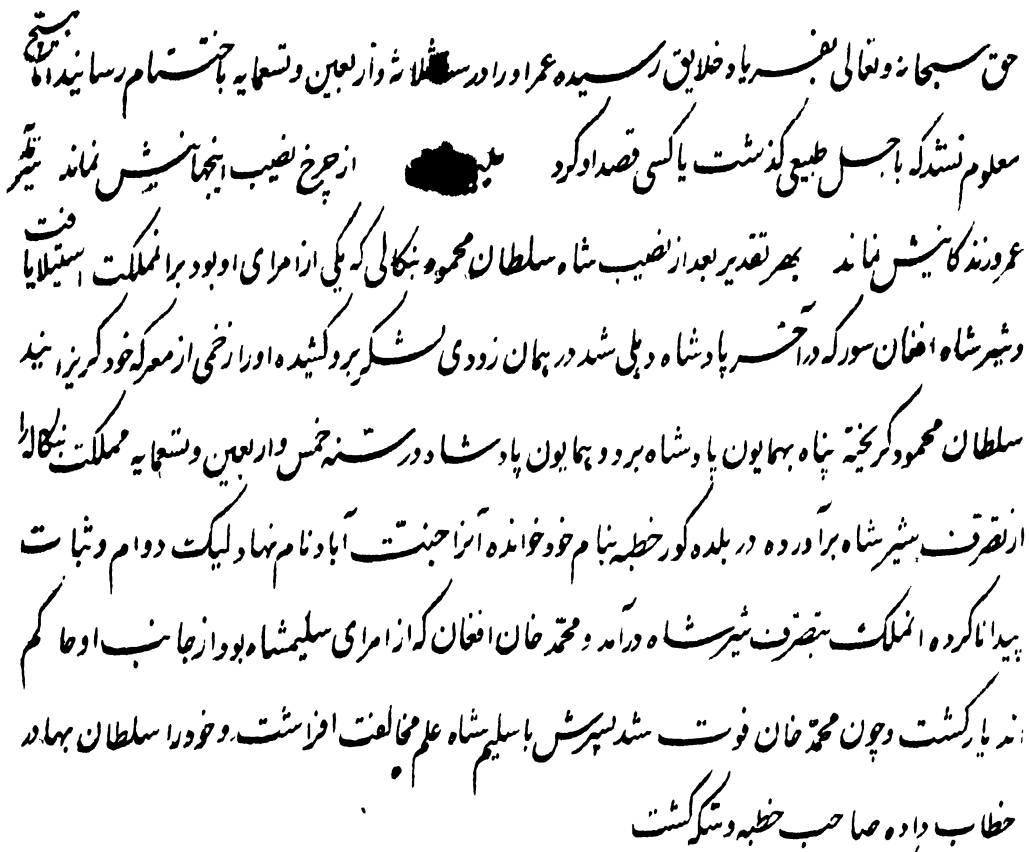 حق سبحانه و تعالی بفریاد خلایق رسیده عمر او را در سنه ثلاثه و اربعین و تسعمایه باختتام رسانید اما هیچ
معلوم نشد که باجل طبیعی گذشت یا کسی قصد او کرد از چرخ نصیب اینجهانیش نماند
عمر و زندکانیش نماند بهر تقدیر بعد از نصیب شاه سلطان محمود بنکالی که یکی از امرای او بود بر انمملکت استیلا یافت
و شیر شاه افغان سور که در آخر پادشاه دهلی شد در همان زودی لشکر برو کشیده او را زخمی از معرکه خود کریزانید
سلطان محمود کریخته پناه بهمایون پادشاه برد و همایون پادشاه در سنه خمس و اربعین و تسعمایه مملکت بنکاله را
از تصرف شیر شاه برآورده در بلده کور خطبه بنام خود خوانده آنرا جنت آباد نام نهاد لیکن دوام و ثبات
پیدا ناکرده انملک بتصرف شیر شاه درآمد و محمد خان افغان که از امرای سلیمشاه بود از جانب او حاکم
اند یار کشت و چون محمد خان فوت شد پسرش با سلیم شاه علم مخالفت افراشت و خود را سلطان بهادر
خطاب داده صاحب خطبه و سکه کشت